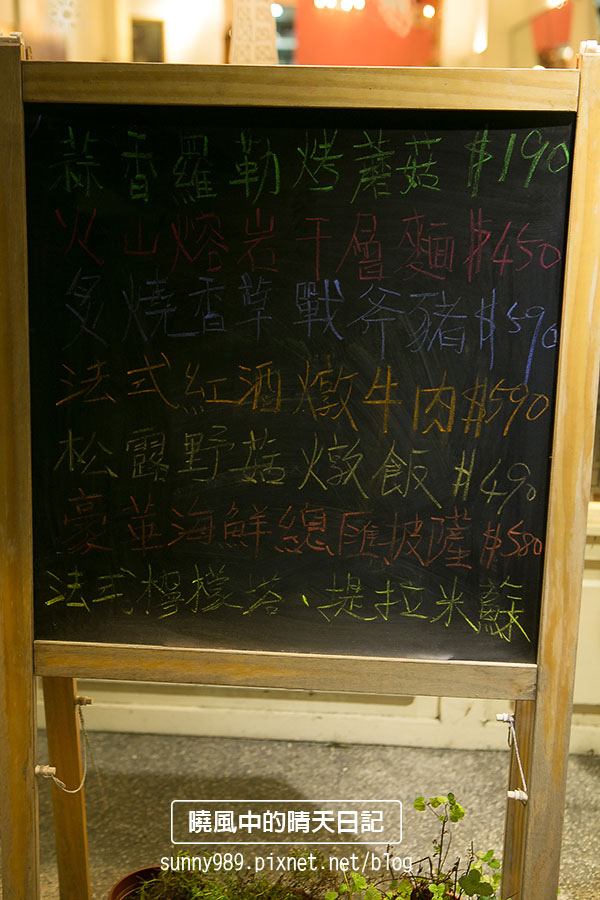 蒜香羅勒烤蘑菇 $190
火山熔岩千層麵 $450
炙燒香草戰斧豬 $590
法式紅酒燉牛肉 $590
松露野菇燉飯 $490
豪華海鮮總匯披薩 $580
法式檸檬塔、提拉米蘇
曉風中的晴天日記
sunny989.pixnet.net/blog